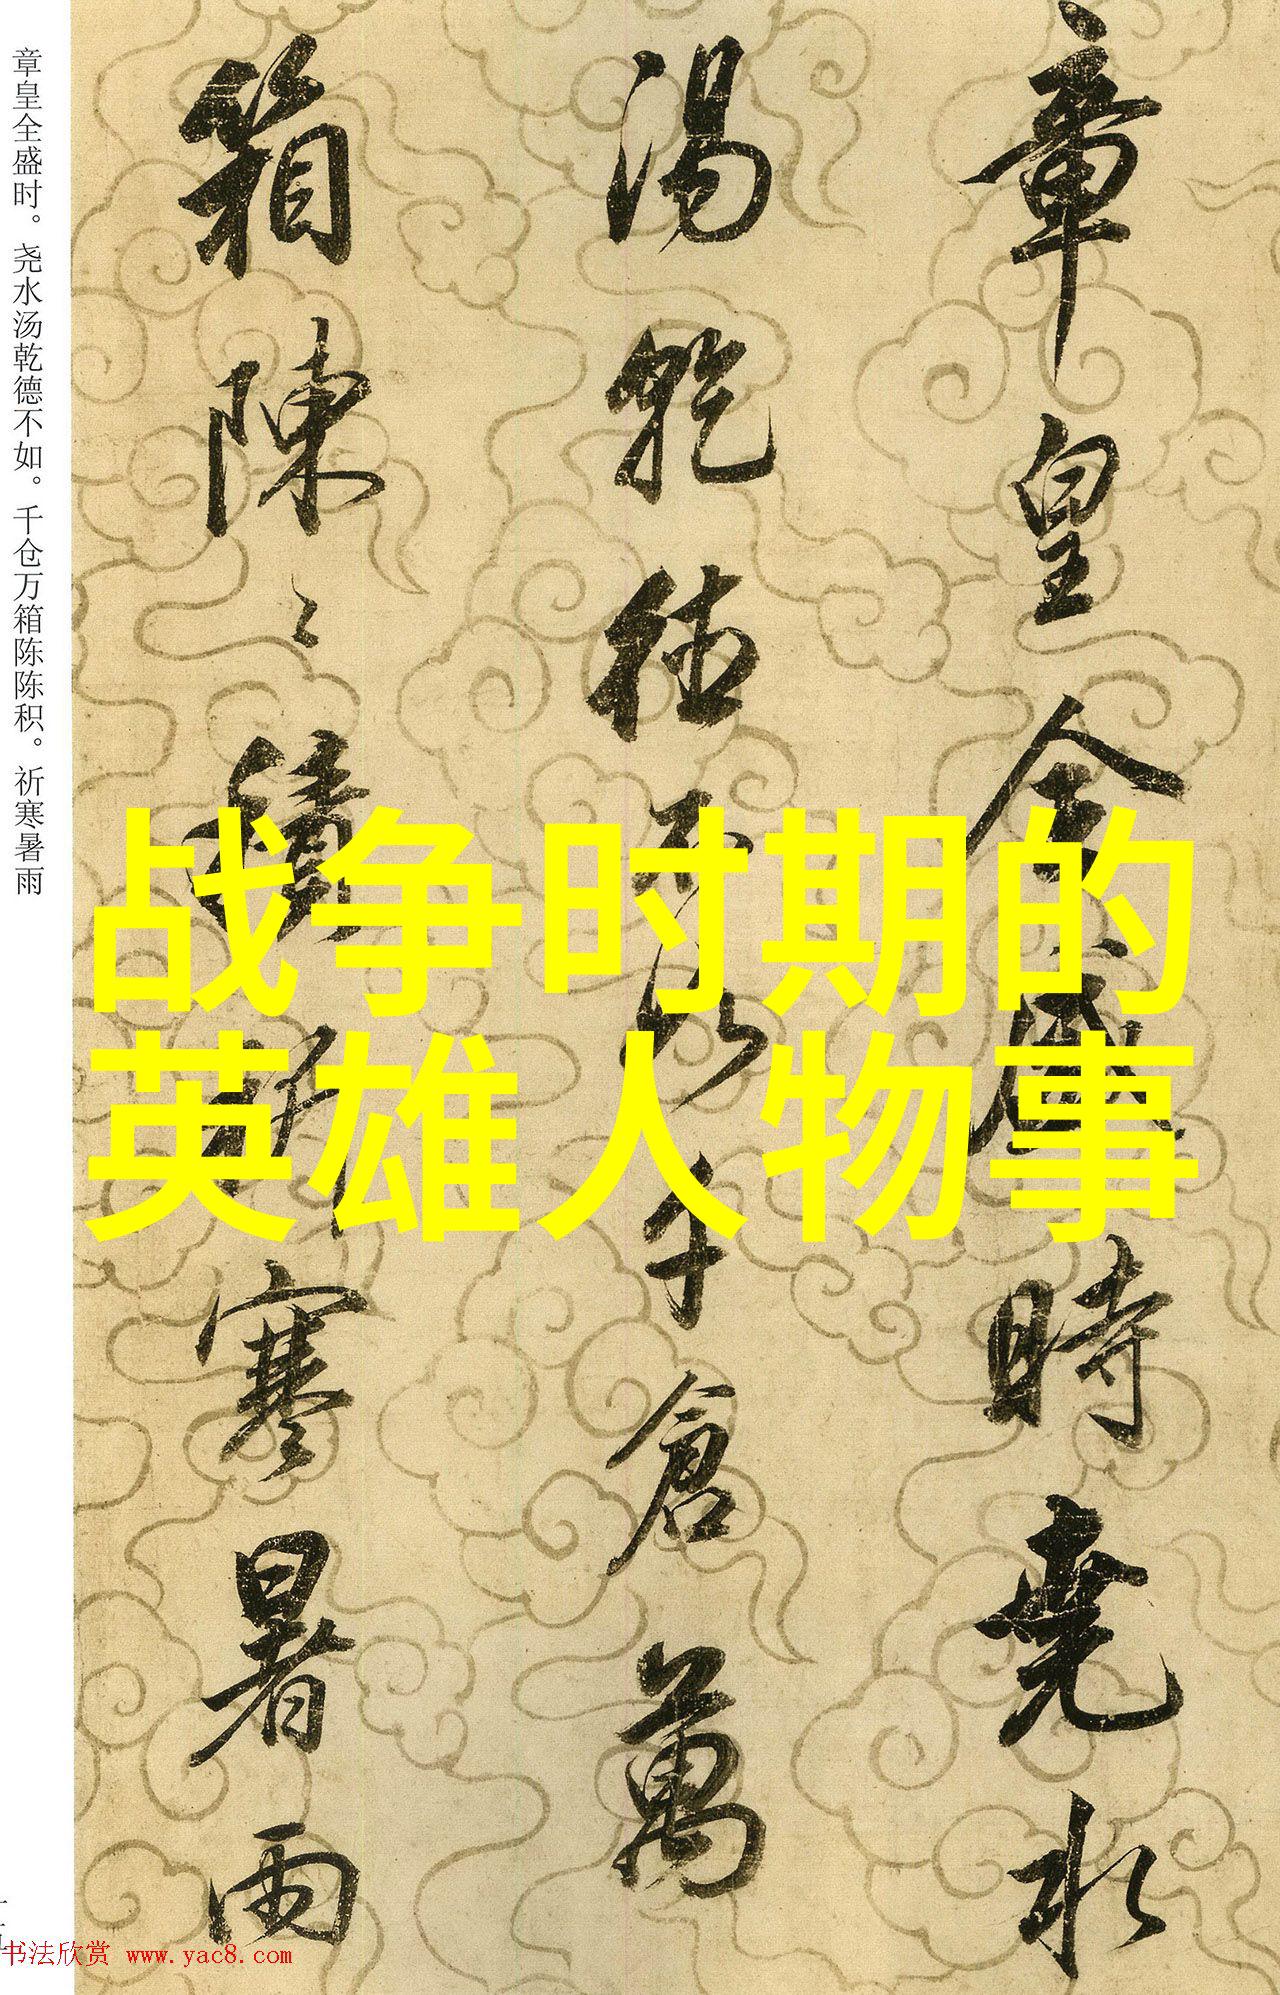 章皇全盛時堯水
湯乾德不如千倉萬
箱陳〻積祈寒暑雨
章皇全盛时。尧水汤乾德不如。千仓万箱陈陈积。祈寒暑雨
战争时期的
英雄人物事
书法欣赏 www.yac8.com